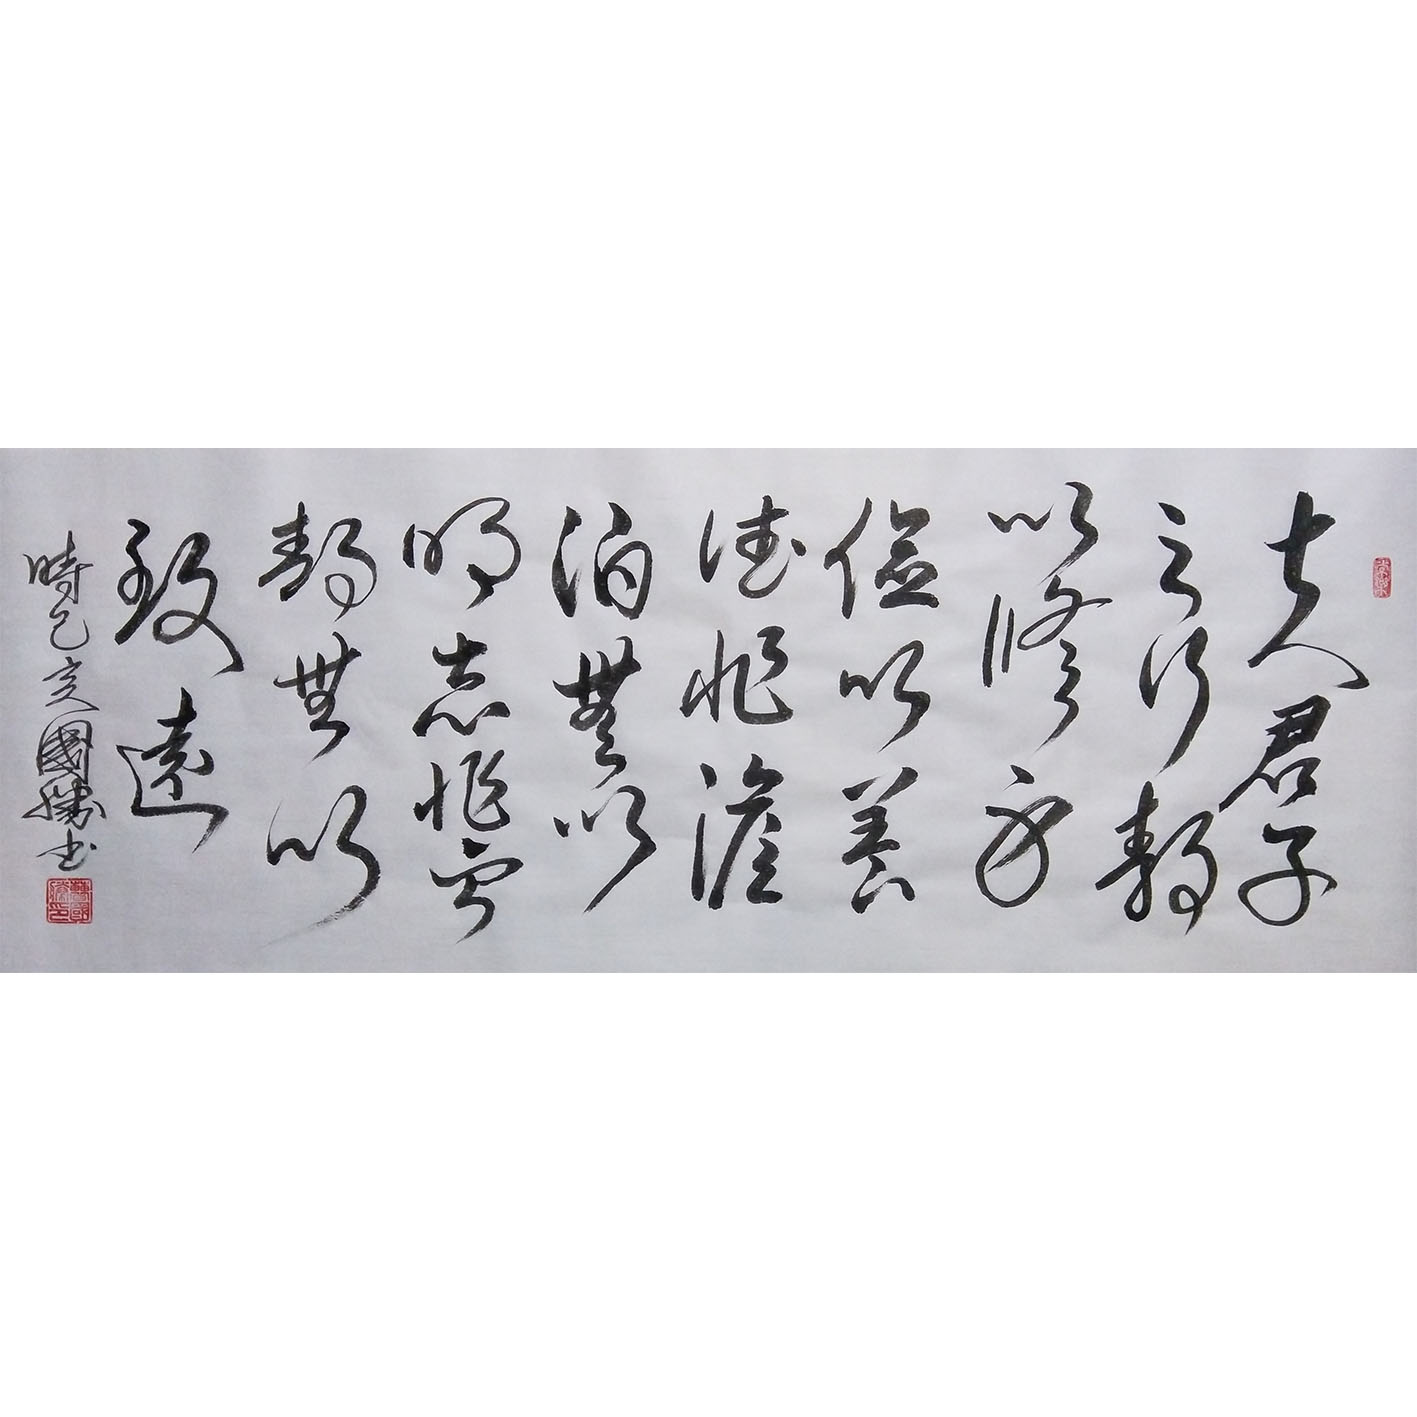 夫人君子
之行静
以修身
儉以養
德非澹
泊無以
明志非寧
静無以
致遠
時己亥國勝書